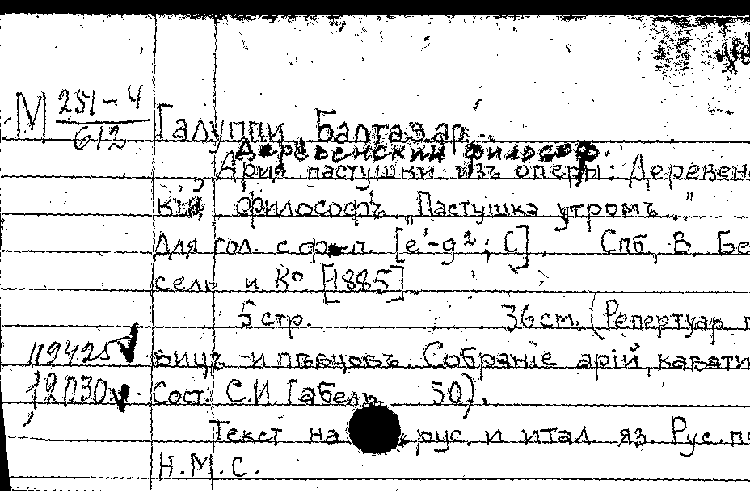 М 251-4/612 Галуппи, Балтазар..
Деревенский философ.
Ария пастушки изъ оперы: Деревенс
кій философъ „Пастушка утромъ.."
Для гол. с ф-п. [e'-g²; C]. Спб, В. Бе
сель и К° [1885]
5 стр. 36 см. (Репертуар п
119425 вицъ и пѣвцовъ. Собраніе арій, кавати
12030 Сост. С.И. Габель 50).
Текст на рус. и итал. яз. Рус. п
Н.М.С.